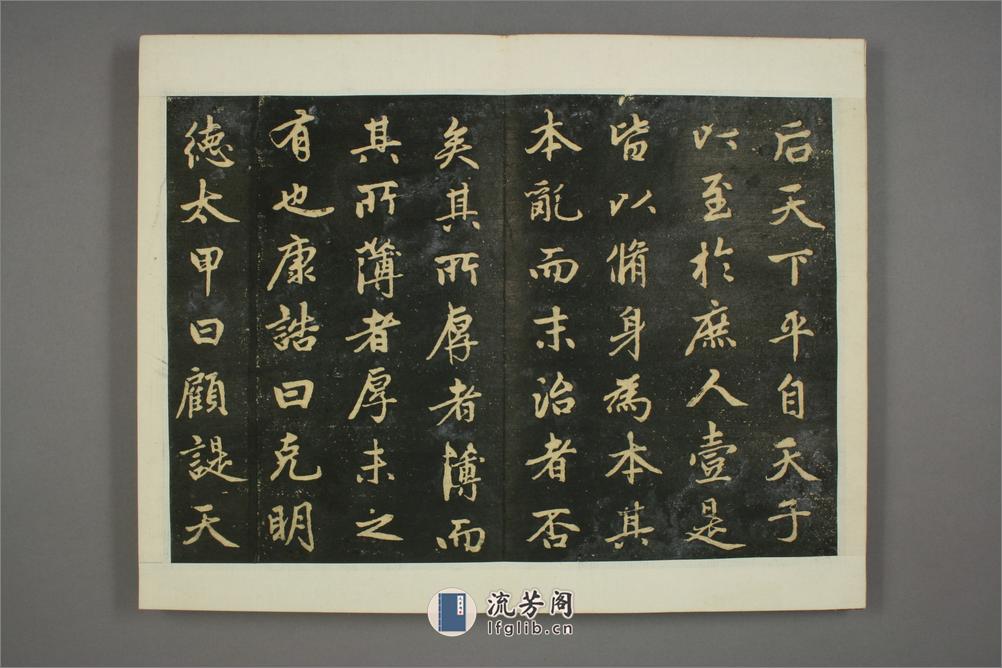 后天下平自天子
以至於庶人壹是
皆以脩身為本其
本亂而末治者否
矣其所厚者薄而
其所薄者厚未之
有也康誥曰克明
德太甲曰顧諟天
流芳阁
lfglib.cn